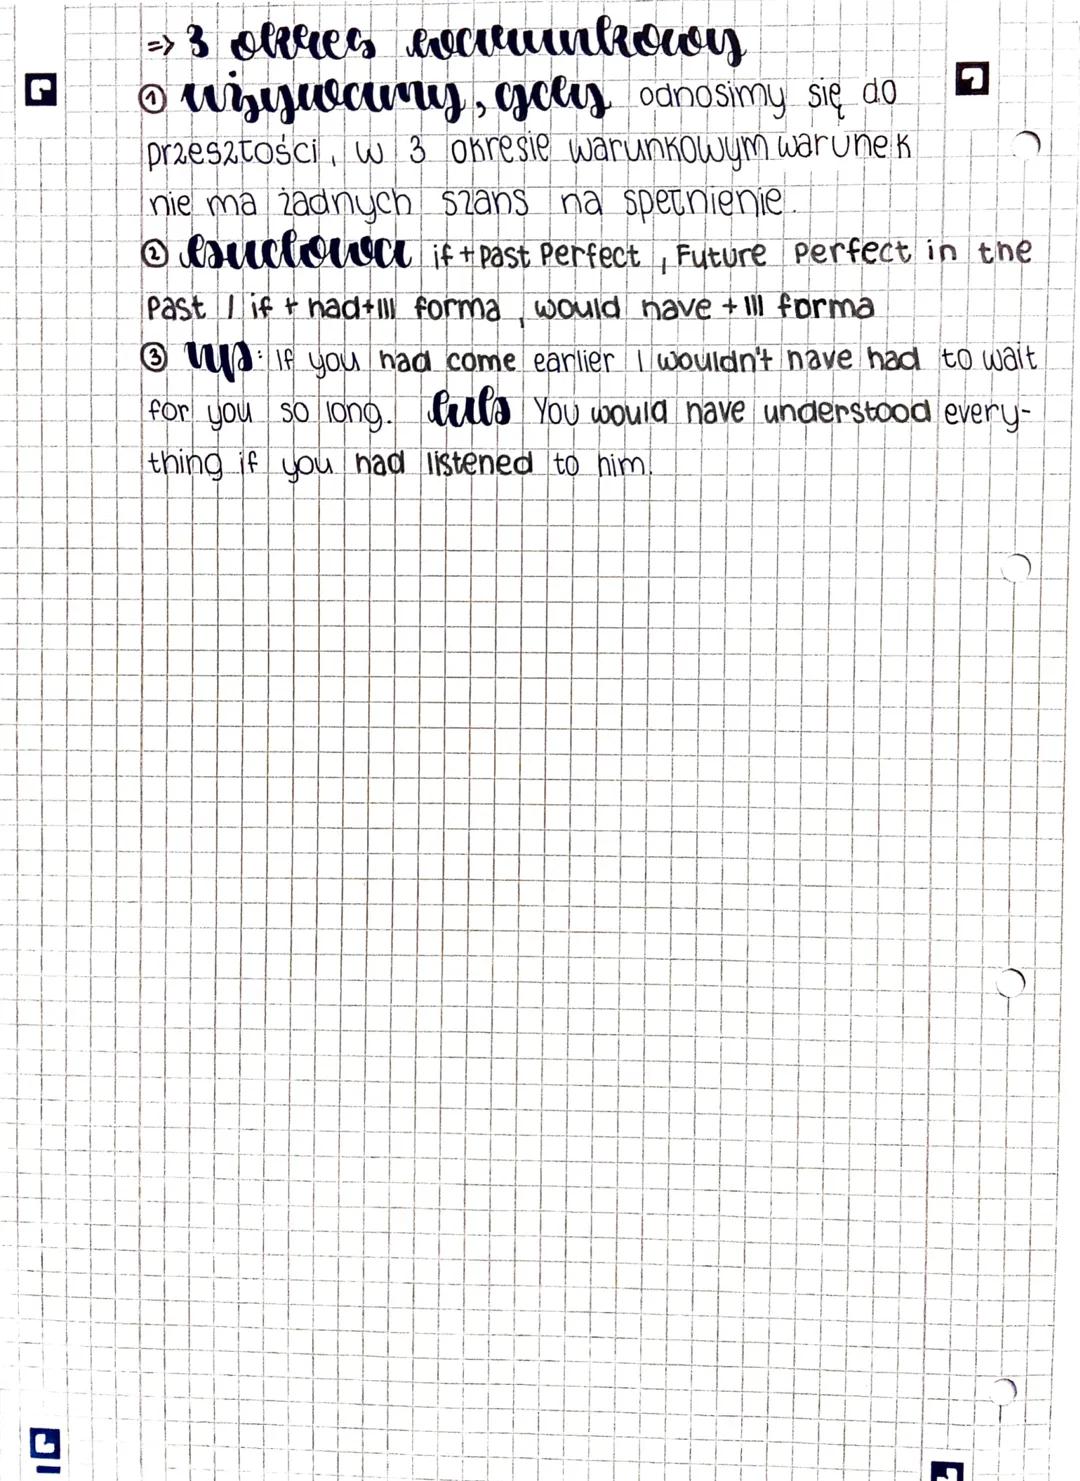 => 3 okres warunkowy
① używamy, gdy odnosimy się do
przeszłości, w 3 okresie warunkowym warunek
nie ma żadnych szans na spełnienie.
② budowa if + Past Perfect, Future Perfect in the
Past / if + had + III forma, would have + III forma
③ np: If you had come earlier I wouldn't have had to wait
for you so long. lub You would have understood every-
thing if you had listened to him.